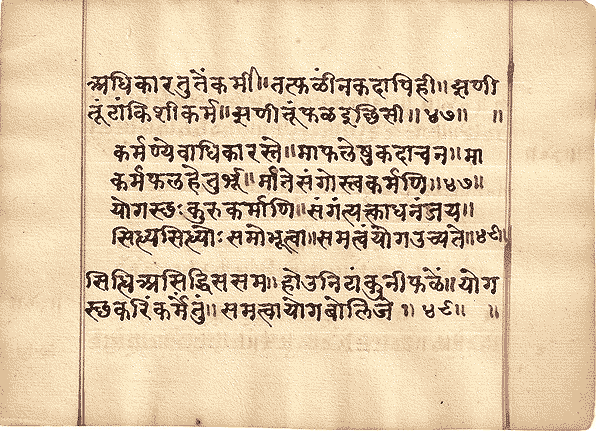 अधिकारतुतेंकर्मी॥तत्फळींनकदापिही॥झणी
तूंटांकिशीकर्म॥झणीतूंफळइछिसी॥४७॥ ॥
कर्मण्येवाधिकारस्ते॥माफलेषुकदाचन॥मा
कर्मफलहेतुर्भू॥र्मातेसंगोस्त्वकर्मणि॥४७॥
योगस्छःकुरुकर्माणि॥संगंत्यक्त्वाधनंजय॥
सिध्यसिध्योःसमोभूत्वा॥समत्वंयोगउच्यते॥४८॥
सिद्धिअसिद्धिससम॥होउनित्यंकुनीफळें॥योग
स्छकरिंकर्मेतुं॥समत्वायोगबोलिजे॥४८॥ ॥